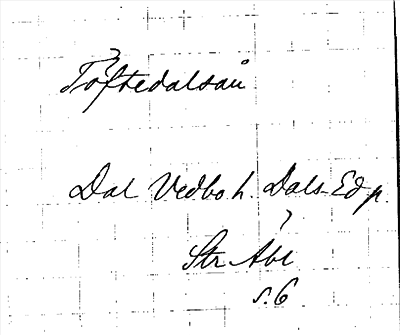 Töftedalsån
Dal Vedbo h. Dals-Ed p.
Str Åbl
s. 6